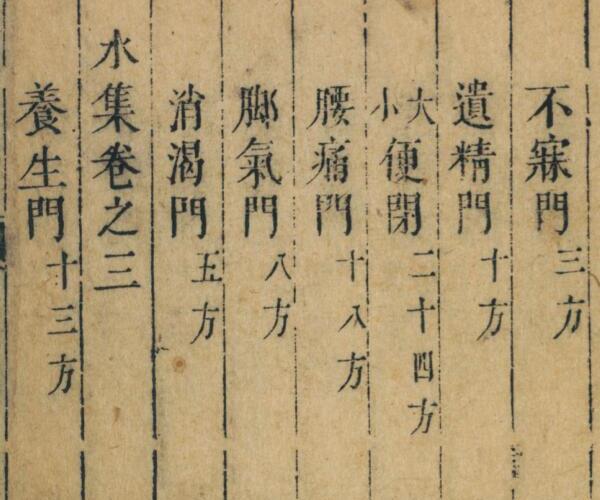 不寐門三方
遺精門十方
大小便閉二十四方
腰痛門十八方
脚氣門八方
消渴門五方
水集卷之三
養生門十三方